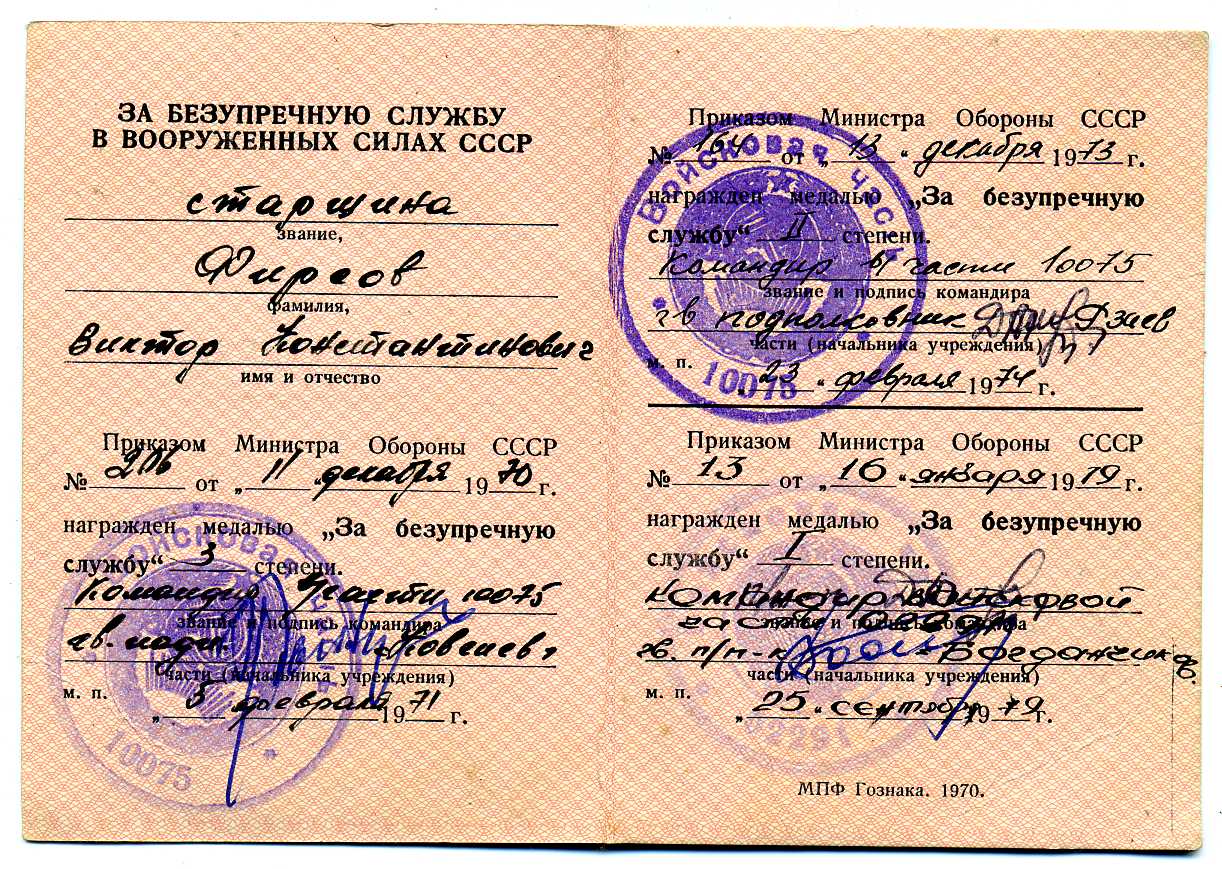 ЗА БЕЗУПРЕЧНУЮ СЛУЖБУ
В ВООРУЖЕННЫХ СИЛАХ СССР
старшина
звание,
Фирсов
фамилия,
Виктор Константинович
имя и отчество
Приказом Министра Обороны СССР
№ 206 от „11" декабря 1970 г.
награжден медалью „За безупречную
службу“ 3 степени.
Командир части 10075
звание и подпись командира
гв. подп.
части (начальника учреждения)
м. п.
„5" февраля 1971 г.
Войсковая часть
10075
Приказом Министра Обороны СССР
№ 164 от „13" декабря 1973 г.
награжден медалью „За безупречную
службу“ II степени.
Командир в/части 10075
звание и подпись командира
гв подполковник Дзиев
части (начальника учреждения)
м. п.
„23" февраля 1974 г.
Войсковая часть
10075
Приказом Министра Обороны СССР
№ 13 от „16" января 1979 г.
награжден медалью „За безупречную
службу“ I степени.
Командир войсковой
части
звание и подпись командира
гв. п/п-к
части (начальника учреждения)
м. п.
„25" сентября 1979 г.
МПФ Гознака. 1970.